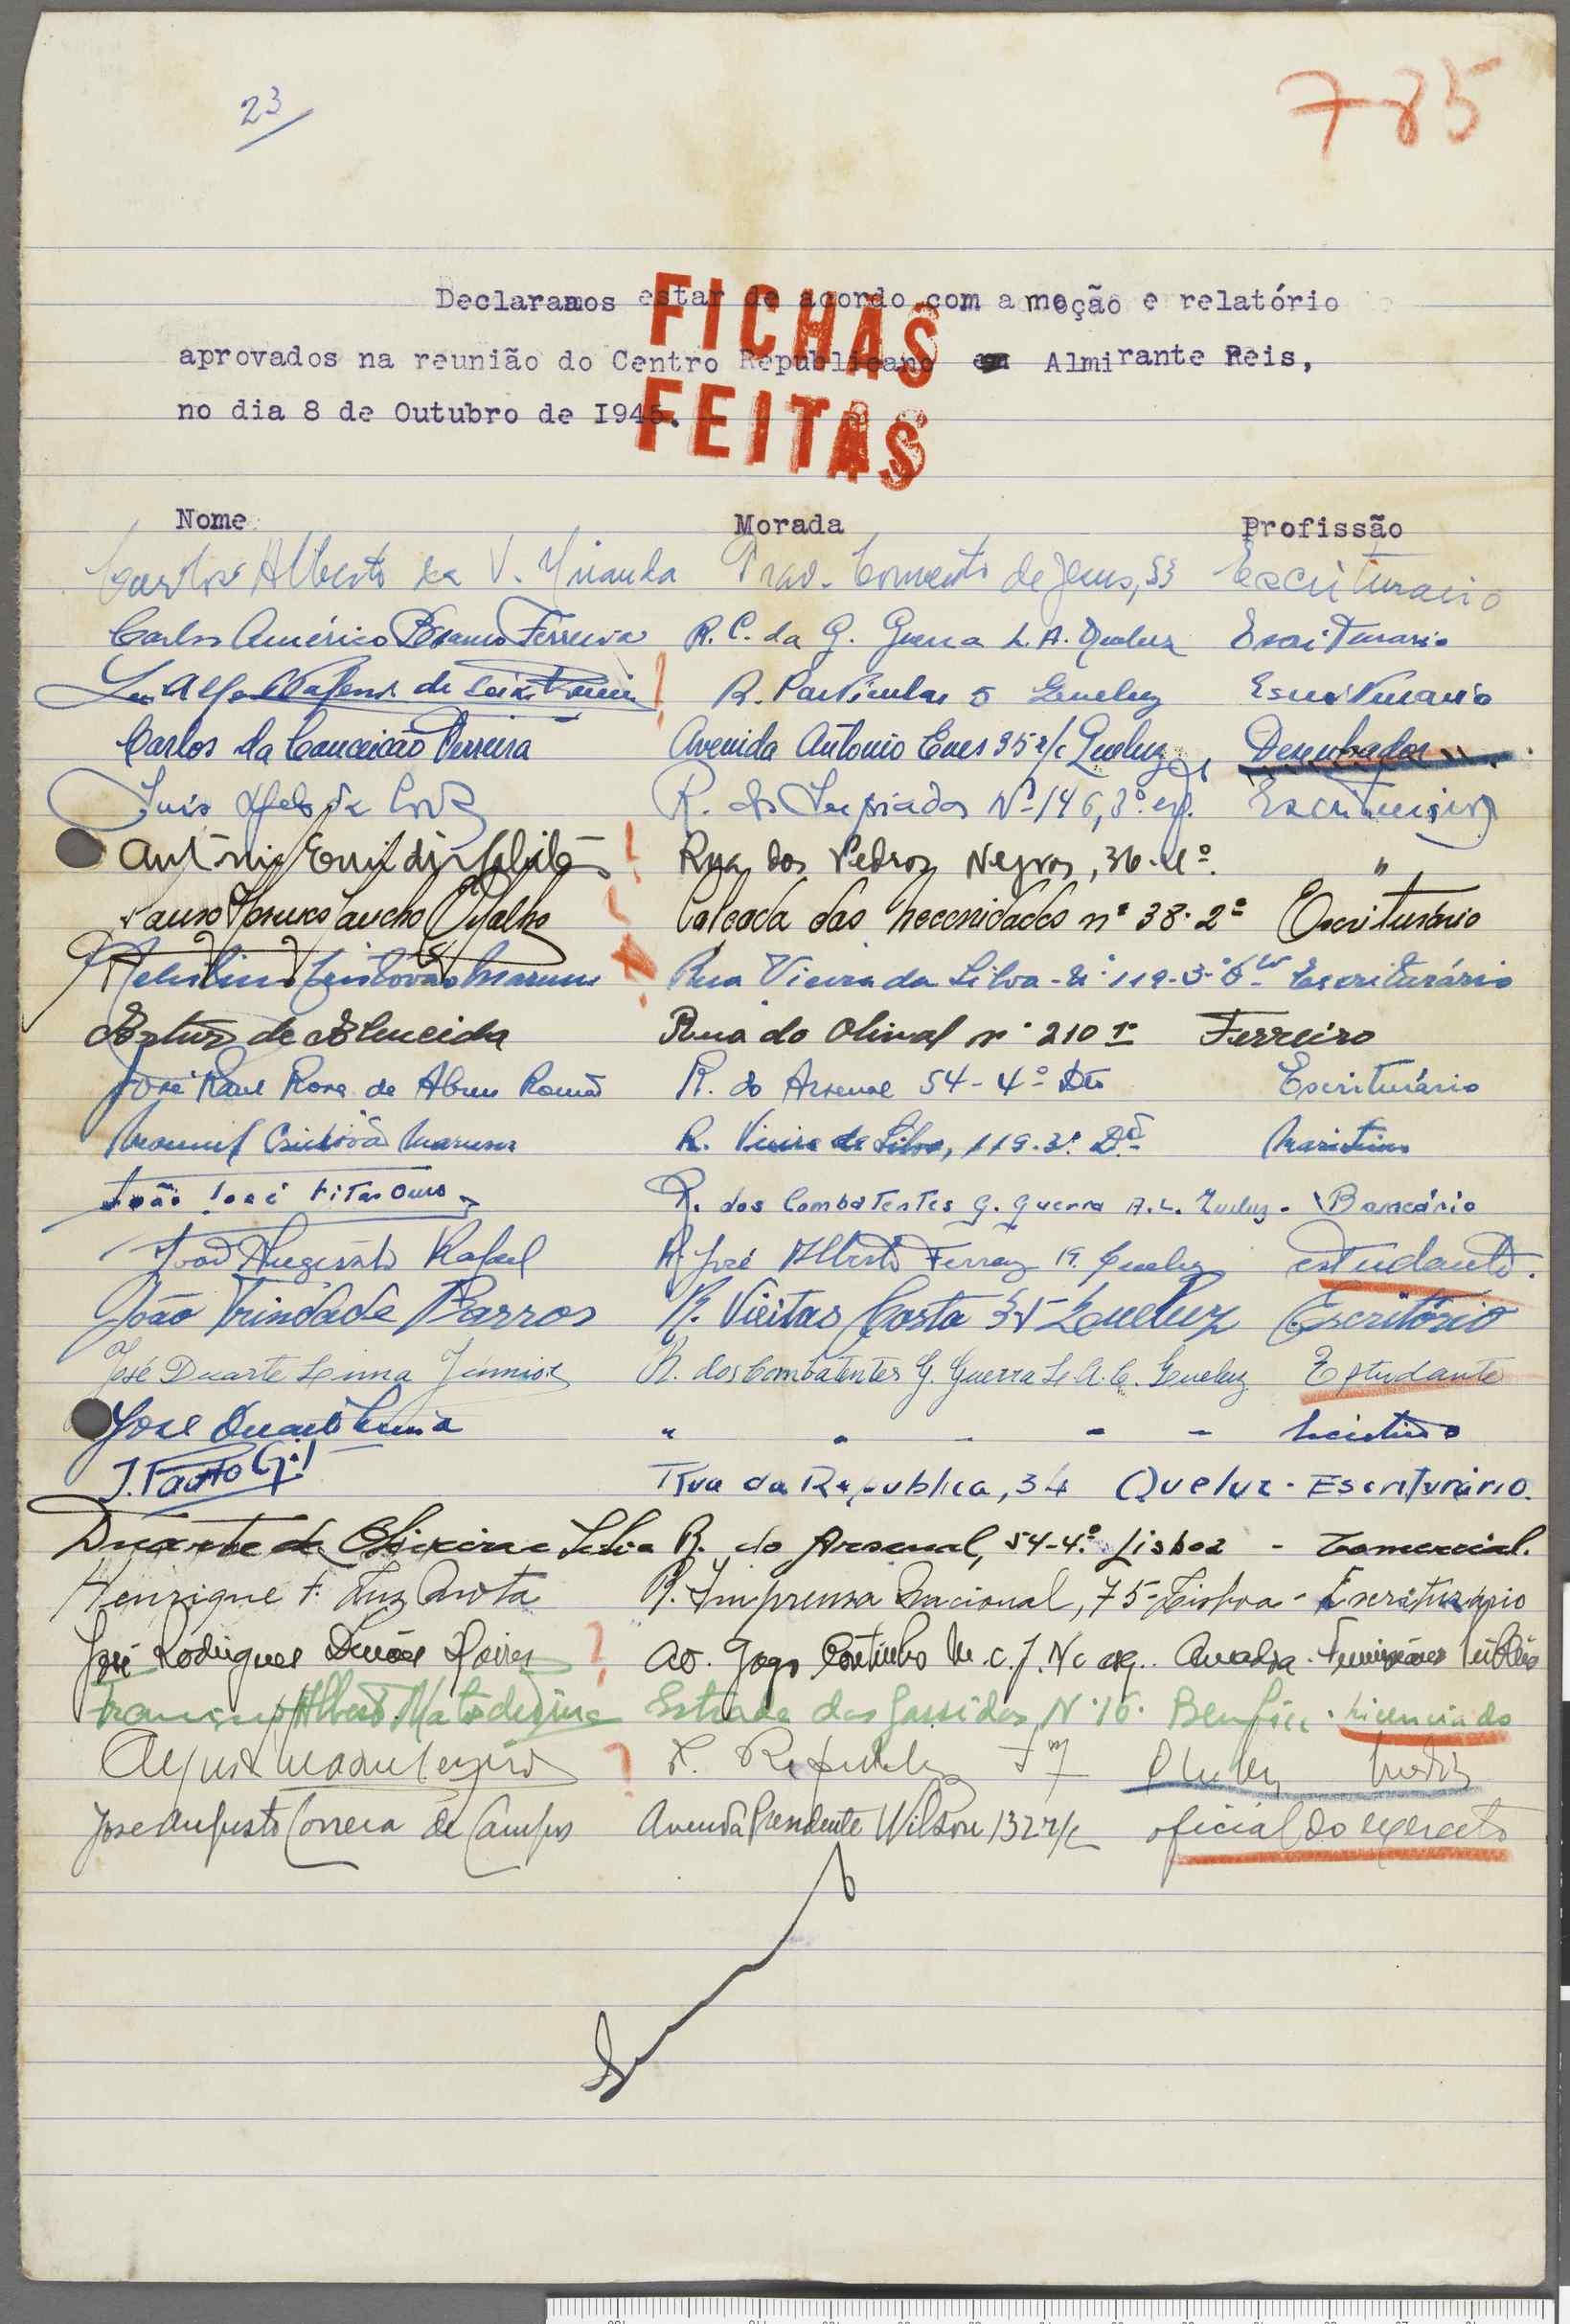 23
785
Declaramos estar de acordo com a moção e relatório
aprovados na reunião do Centro Republicano Almirante Reis,
no dia 8 de Outubro de 1945.
FICHAS
FEITAS
Nome Morada Profissão
Carlos Alberto da V. Miranda Trav. Convento de Jesus, 53 Escriturario
Carlos Américo Ferreira R. C. da G. Guerra L. A. Queluz Escriturario
R. Particular 5 Queluz Escriturario
Carlos da Conceição Ferreira Avenida Antonio Enes 35 r/c Queluz Desenhador
Luís da R. dos Lusiadas Nº 146, 3º esq. Escriturário
António Rua das Pedras Negras, 36-4º. "
Calçada das Necessidades nº 38-2º Escriturário
Cristóvão Rua Vieira da Silva - Nº 119-3º Escriturário
Artur de Almeida Rua do Olival nº 210 1º Ferreiro
José Raul Rosa de Abreu Romão R. do Arsenal 54-4º Dto Escriturário
Manuel Cristóvão R. Vieira da Silva, 119-3º Dº Maritimo
João José Fitas Ouro R. dos Combatentes G. Guerra A.L. Queluz - Bancário
João Augusto Rafael R. José Alberto Ferraz 19 Queluz estudante.
João Trindade Barros R. Vieitas Costa Queluz Escritório
José Duarte Lima Júnior R. dos Combatentes G. Guerra L.A.C. Queluz Estudante
José Duarte Lima " " - - -
J. Fausto Gil Rua da Republica, 34 Queluz - Escriturário.
Duarte de Oliveira e Silva R. do Arsenal, 54-4º. Lisboa - Comercial.
Henrique F. Luz Mota R. Imprensa Nacional, 75 - Lisboa - Escriturario
José Rodrigues Av. Gago Coutinho Amadora
Francisco Alberto Estrada das Garridas, Nº 16. Benfica. Licenciado
R. Republica Queluz
José Augusto Correia de Campos Avenida Presidente Wilson 132 r/c oficial do exercito